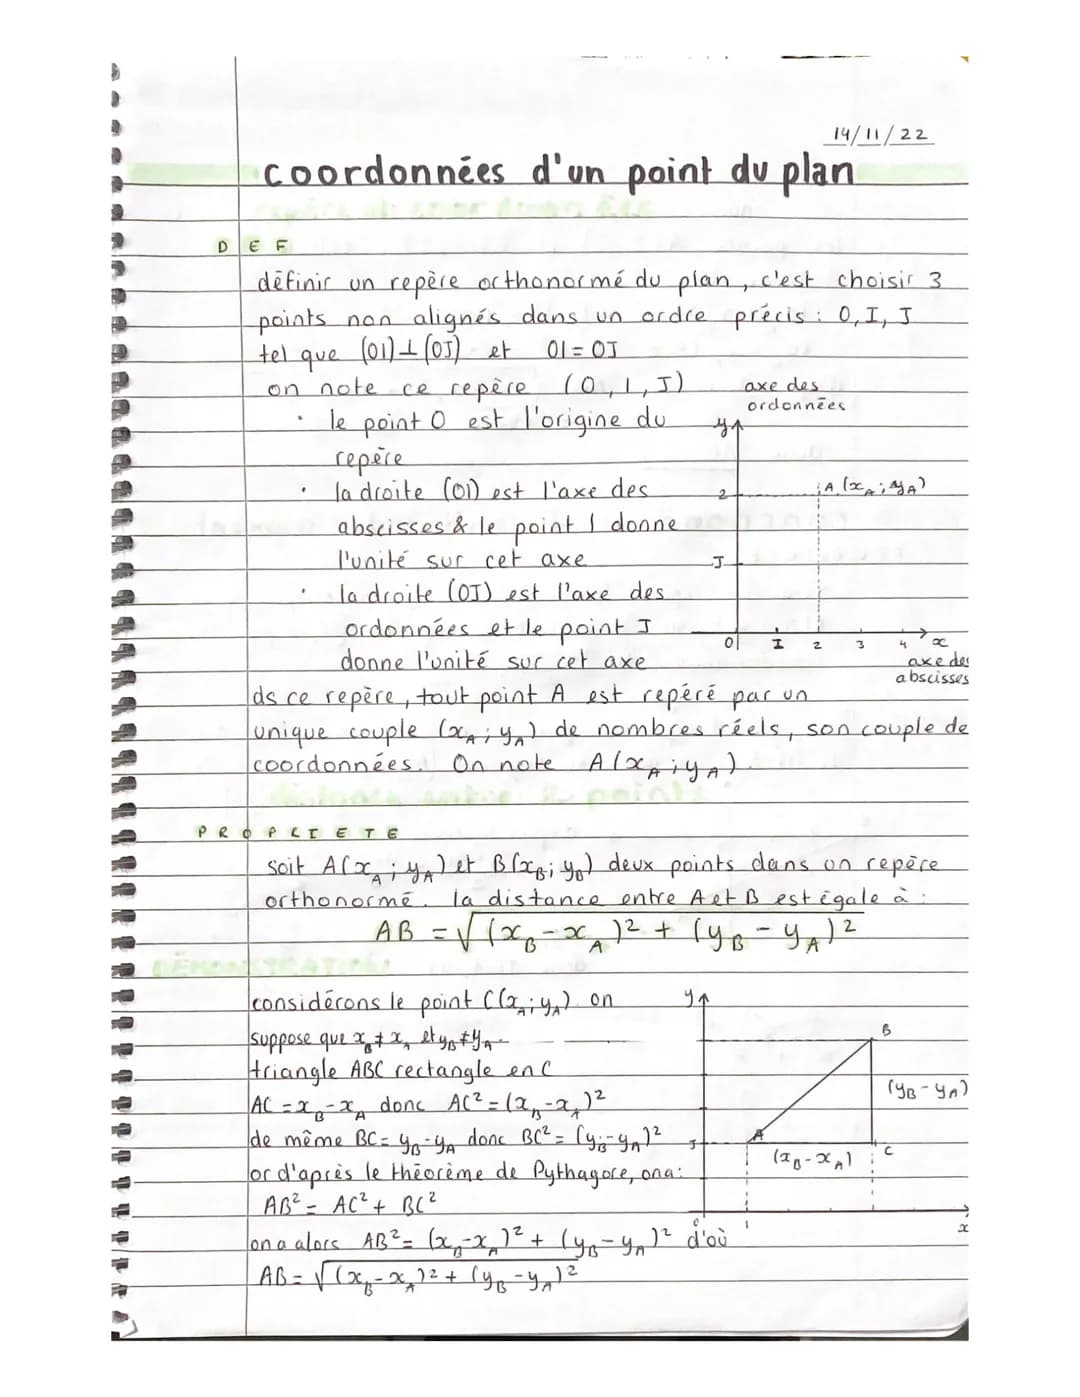 14/11/22
coordonnées d'un point du plan
DEF
définir un repère orthonormé du plan, c'est choisir 3
points non alignés dans un ordre précis : O, I, J
tel que (OI)⊥(OJ) et OI=OJ
on note ce repère (O, I, J)
• le point O est l'origine du
repère
• la droite (OI) est l'axe des
abscisses & le point I donne
l'unité sur cet axe
• la droite (OJ) est l'axe des
ordonnées et le point J
donne l'unité sur cet axe
axe des
ordonnées
y
2
A (x_A ; y_A)
J
O I 2 3 4 x
axe des
abscisses
ds ce repère, tout point A est repéré par un
unique couple (x_A ; y_A) de nombres réels, son couple de
coordonnées. On note A(x_A ; y_A)
PROPRIETE
soit A(x_A ; y_A) et B(x_B ; y_B) deux points dans un repère
orthonormé. la distance entre A et B est égale à :
AB = √(x_B - x_A)² + (y_B - y_A)²
DÉMONSTRATION
considérons le point C(x_A ; y_A) on
suppose que x_B ≠ x_A et y_B ≠ y_A
triangle ABC rectangle en C
AC = x_B - x_A donc AC² = (x_B - x_A)²
de même BC = y_B - y_A donc BC² = (y_B - y_A)²
or d'après le théorème de Pythagore, on a :
AB² = AC² + BC²
on a alors AB² = (x_B - x_A)² + (y_B - y_A)² d'où
AB = √(x_B - x_A)² + (y_B - y_A)²
y
B
(y_B - y_A)
J
A
(x_B - x_A)
C
O 1 x